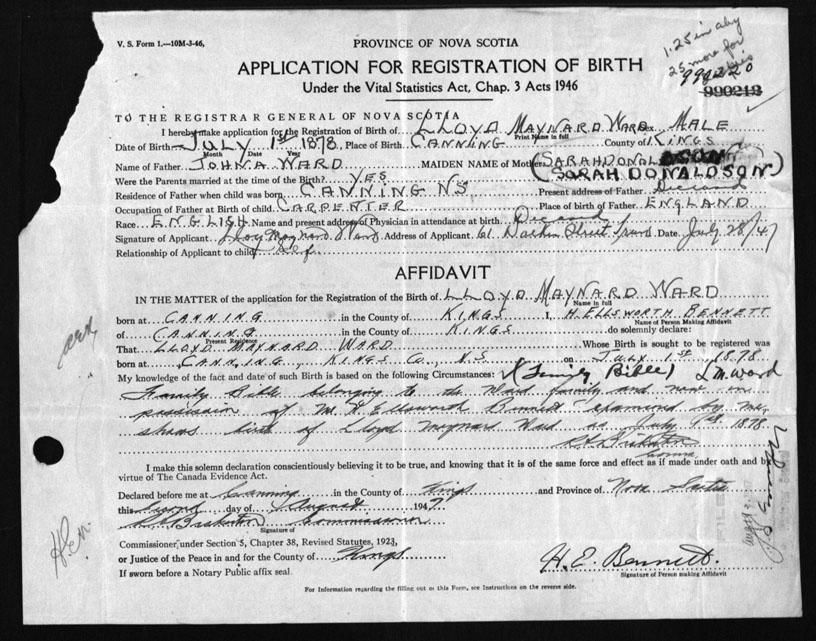 V. S. Form 1.—10M-3-46,
PROVINCE OF NOVA SCOTIA
1.25 in
25 more for
APPLICATION FOR REGISTRATION OF BIRTH
990220
Under the Vital Statistics Act, Chap. 3 Acts 1946
990213
TO THE REGISTRAR GENERAL OF NOVA SCOTIA
I hereby make application for the Registration of Birth of LLOYD MAYNARD WARD Sex MALE
Print Name in full
Date of Birth JULY 1st 1878, Place of Birth CANNING County of KINGS
Month Date Year
Name of Father JOHN A WARD MAIDEN NAME of Mother (SARAH DONALDSON)
(SARAH DONALDSON)
Were the Parents married at the time of the Birth? YES
Residence of Father when child was born CANNING NS Present address of Father Deceased
Occupation of Father at Birth of child CARPENTER Place of birth of Father ENGLAND
Race ENGLISH Name and present address of Physician in attendance at birth Deceased
Signature of Applicant Lloyd Maynard Ward Address of Applicant 61 Street Date July 28/47
Relationship of Applicant to child Self
AFFIDAVIT
IN THE MATTER of the application for the Registration of the Birth of LLOYD MAYNARD WARD
Name in full
born at CANNING in the County of KINGS I, H. ELLSWORTH BENNETT
Name of Person Making Affidavit
of CANNING in the County of KINGS do solemnly declare:
Present Residence
That LLOYD MAYNARD WARD Whose Birth is sought to be registered was
born at CANNING, KINGS Co, NS on JULY 1st 1878
My knowledge of the fact and date of such Birth is based on the following Circumstances: (Family Bible) L M Ward
Family Bible belonging to the Ward family and now in
possession of Mr H Ellsworth Bennett examined by me,
shows birth of Lloyd Maynard Ward as July 1st 1878.
I make this solemn declaration conscientiously believing it to be true, and knowing that it is of the same force and effect as if made under oath and by
virtue of The Canada Evidence Act.
Declared before me at Canning in the County of Kings and Province of Nova Scotia
this Second day of August 1947.
Commissioner
Signature of
Commissioner, under Section 5, Chapter 38, Revised Statutes, 1923,
or Justice of the Peace in and for the County of Kings
H. E. Bennett.
Signature of Person making Affidavit
If sworn before a Notary Public affix seal.
For Information regarding the filling out of this Form, see Instructions on the reverse side.